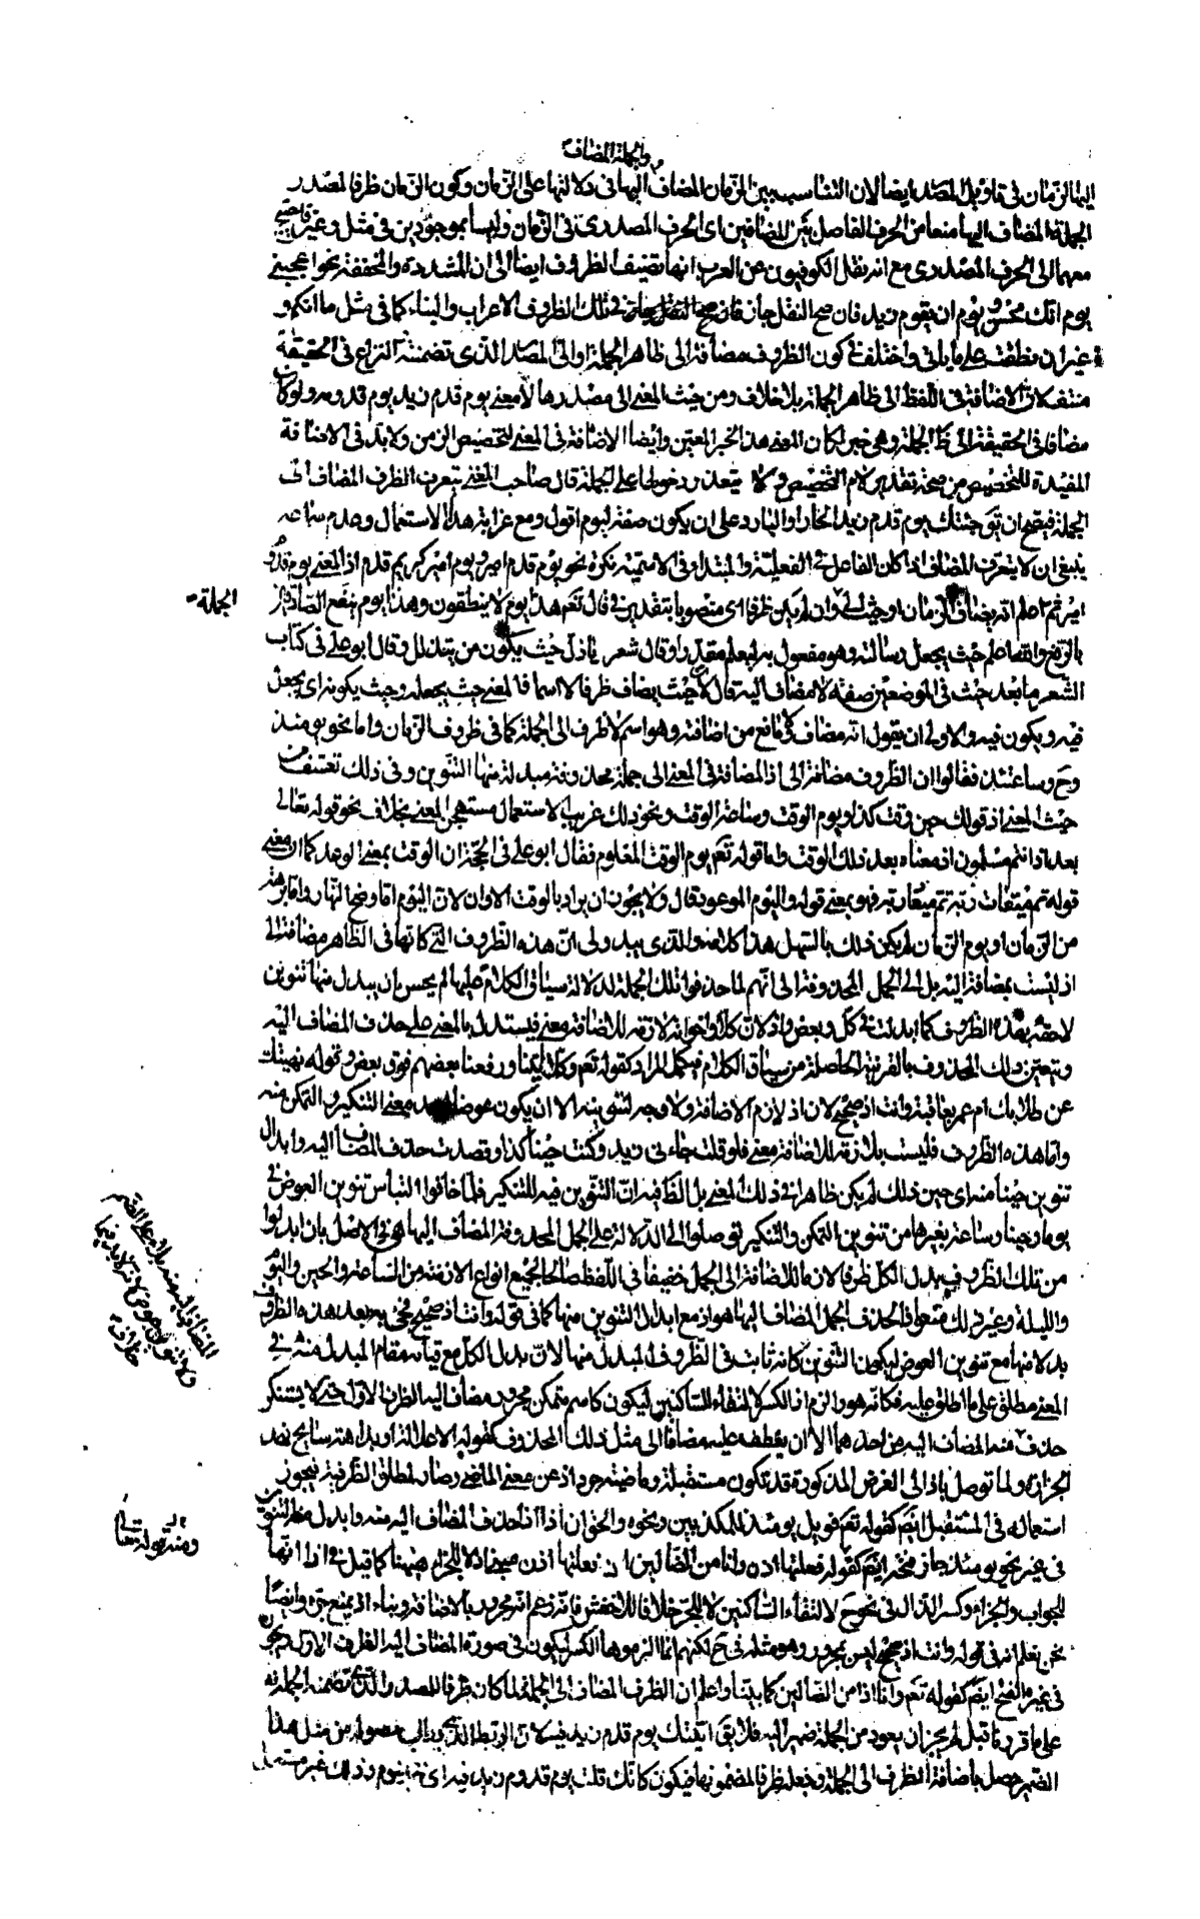 والجملة المضاف
اليها الزمان في تأويل المصدر ايضا لان التناسب بين الزمان المضاف اليها في دلالتها على الزمان وكون الزمان ظرفا لمصدر
الجملة المضاف اليها منعا من الحرف الفاصل بين المضافين اى الحرف المصدرى في الزمان وليسا بموجودين في مثل وغير فاحتيج
معهما الى الحرف المصدرى مع انه نقل الكوفيون عن العرب انها تضيف الظروف ايضا الى ان المشددة والمخففة نحو اعجبنى
يوم انك محسن ويوم ان يقوم زيد فان صح النقل جاز في تلك الظروف الاعراب والبناء كما في مثل ما انكمو
غير ان نطقت على ما ياتى واختلف في كون الظروف مضافة الى ظاهر الجملة او الى المصدر الذى تضمنته النزاع في الحقيقة
منتف لان الاضافة في اللفظ الى ظاهر الجملة بلا خلاف ومن حيث المعنى الى مصدرها لان معنى يوم قدم زيد يوم قدومه ولو كان
مضافا في الحقيقة الى الجملة وهى خبر لكان المعنى هذا الخبر المعين وايضا الاضافة في المعنى لتخصيص الزمن ولا بد في الاضافة
المفيدة للتخصيص من صحة تقدير لام التخصيص ولا يتعذر دخولها على الجملة قال صاحب المغنى يتعرف الظرف المضاف الى
الجملة فيصح ان تقول جئتك يوم قدم زيد الحار او البارد على ان يكون صفة ليوم اقول ومع غرابة هذا الاستعمال وعدم سماعه
ينبغى ان لا يتعرف المضاف اذا كان الفاعل في الفعلية والمبتدأ في الاسمية نكرة نحو يوم قدم امير ويوم امير كريم قدم اذ المعنى يوم قدوم
امير ثم اعلم انه يضاف الزمان او حيث الى الجملة وان لم يكن ظرفا اى منصوبا بتقدير في قال تعم هذا يوم لا ينطقون وهذا يوم ينفع الصادقين
بالرفع والله اعلم حيث يجعل رسالته وهو مفعول به ليعلم مقدرا وقال شعر حيث يكون من يتذلل وقال ابو على في كتاب
الشعر ما بعد حيث في الموضعين صفة لا مضاف اليه قال لان حيث يضاف ظرفا لا اسما فالمعنى حيث يجعله وحيث يكونه اى يجعل
فيه ويكون فيه والاولى ان يقول انه مضاف ولا مانع من اضافته وهو اسم لا ظرف الى الجملة كما في ظروف الزمان واما نحو يومئذ
وح وساعتئذ فقالوا ان الظروف مضافة الى اذ المضافة في المعنى الى جملة محذوفة مبدلة منها التنوين وفى ذلك تعسف من
حيث المعنى اذ قولك حين وقت كذا ويوم الوقت وساعة الوقت ونحو ذلك غريب الاستعمال مستهجن المعنى بخلاف نحو قوله تعالى
بعد اذ انتم مسلمون اذ معناه بعد ذلك الوقت واما قوله تعم يوم الوقت المعلوم فقال ابو على في الحجة ان الوقت بمعنى الوعد كما ان معنى
قوله تم ميقات ربه تم ميعاد ربه فهو بمعنى قوله واليوم الموعود قال ولا يجوز ان يراد بالوقت الاوان لان اليوم اما وضح النهار واما برهة
من الزمان او يوم الزمان لم يكن ذلك بالسهل هذا كلامه والذى يبدو لى ان هذه الظروف التى كانها في الظاهر مضافة الى
اذ ليست بمضافة اليه بل الى الجمل المحذوفة الا انهم لما حذفوا تلك الجملة لدلالة سياق الكلام عليها لم يحسن ان يبدل منها تنوين
لاحق بهذه الظروف كما ابدلت في كل وبعض واذ لان كلا واخواته لازمة للاضافة معنى فيستدل بالمعنى على حذف المضاف اليه
ويتعين ذلك المحذوف بالقرينة الحاصلة من سياق الكلام فيكمل المراد كقوله تعم وكلا آتينا ورفعنا بعضهم فوق بعض وقوله نهيتك
عن طلابك ام عمرو بعاقبة وانت اذ صحيح لان اذ لازم الاضافة ولا وجه لتنوينه الا ان يكون عوضا لبعد معنى التنكير والتمكن منه
واما هذه الظروف فليست بلازمة للاضافة معنى فلو قلت جاءنى زيد وكنت حينا كذا وقصدت حذف المضاف اليه وابدال
تنوين حينا منه اى حين ذلك لم يكن ظاهرا في ذلك المعنى بل الظاهر ان التنوين فيه للتنكير فلما خافوا التباس تنوين العوض في
يوما وحينا وساعة بغيرها من تنوين التمكن والتنكير توصلوا الى الدلالة على الجمل المحذوفة المضاف اليها هو في الاصل بان ابدلوا
من تلك الظروف بدل الكل ظرفا لازما للاضافة الى الجمل خفيفا في اللفظ صالحا لجميع انواع الازمنة من الساعة والحين واليوم
والليلة وغير ذلك متعودا لحذف الجمل المضاف اليها هو اذ مع ابدال التنوين منها كما في قوله وانت اذ صحيح فجئ بعد هذه الظروف
بدلا منها مع تنوين العوض ليكون التنوين كانه ثابت في الظروف المبدل منها لان بدل الكل مع قيامه مقام المبدل منه في
المعنى مطلق على ما اطلق عليه فكانه هو والزم اذ الكسر لالتقاء الساكنين ليكون كاسم متمكن مجرور مضاف اليه الظرف الاول حتى لا يستنكر
حذف منه المضاف اليه من احدهما الا ان يعطف عليه مضاف الى مثل ذلك المحذوف كقوله الا علالة او بداهة سابح نهد
الجزارة ولما توصل باذ الى الغرض المذكورة قد تكون مستقبلة وماضية جرد اذ عن معنى الماضى وصار لمطلق الظرفية فيجوز
استعماله في المستقبل ايضا كقوله تعم فويل يومئذ للمكذبين ونحوه والحق ان اذا اذا حذف المضاف اليه منه وابدل منه التنوين
في غير نحو يومئذ جاز فتحه ايضا كقوله فعلتها اذا وانا من الضالين اى فعلتها اذ ربيتنى اذ لا للجزاء ههنا كما قيل في اذا انها
للجواب والجزاء وكسر الذال في نحو ح لالتقاء الساكنين لا للجر خلافا للاخفش فانه زعم انه مجرور بالاضافة وبناء اذ يمنع جره وايضا
نحن نعلم انه في قوله وانت اذ صحيح ليس بمجرور وهو مثله في ح لكنهم انما الزموها الكسر ليكون في صورة المضاف اليه الظرف الاول ويجوز
في غيره الفتح ايضا كقوله تعم وانا اذا من الضالين كما بينا واعلم ان الظرف المضاف الى الجملة لما كان ظرفا للمصدر الذى تضمنته الجملة
على ما قررنا قبل لم يجز ان يعود من الجملة ضمير اليه فلا يق اتيتك يوم قدم زيد فيه لان الربط الذى يطلب حصوله من مثل هذا
الضمير حصل باضافة الظرف الى الجملة وجعله ظرفا لمضمونها فيكون كانك قلت يوم قدوم زيد فيه اى في اليوم وذلك غير مستعمل
الجملة
ومنه قوله تعالى